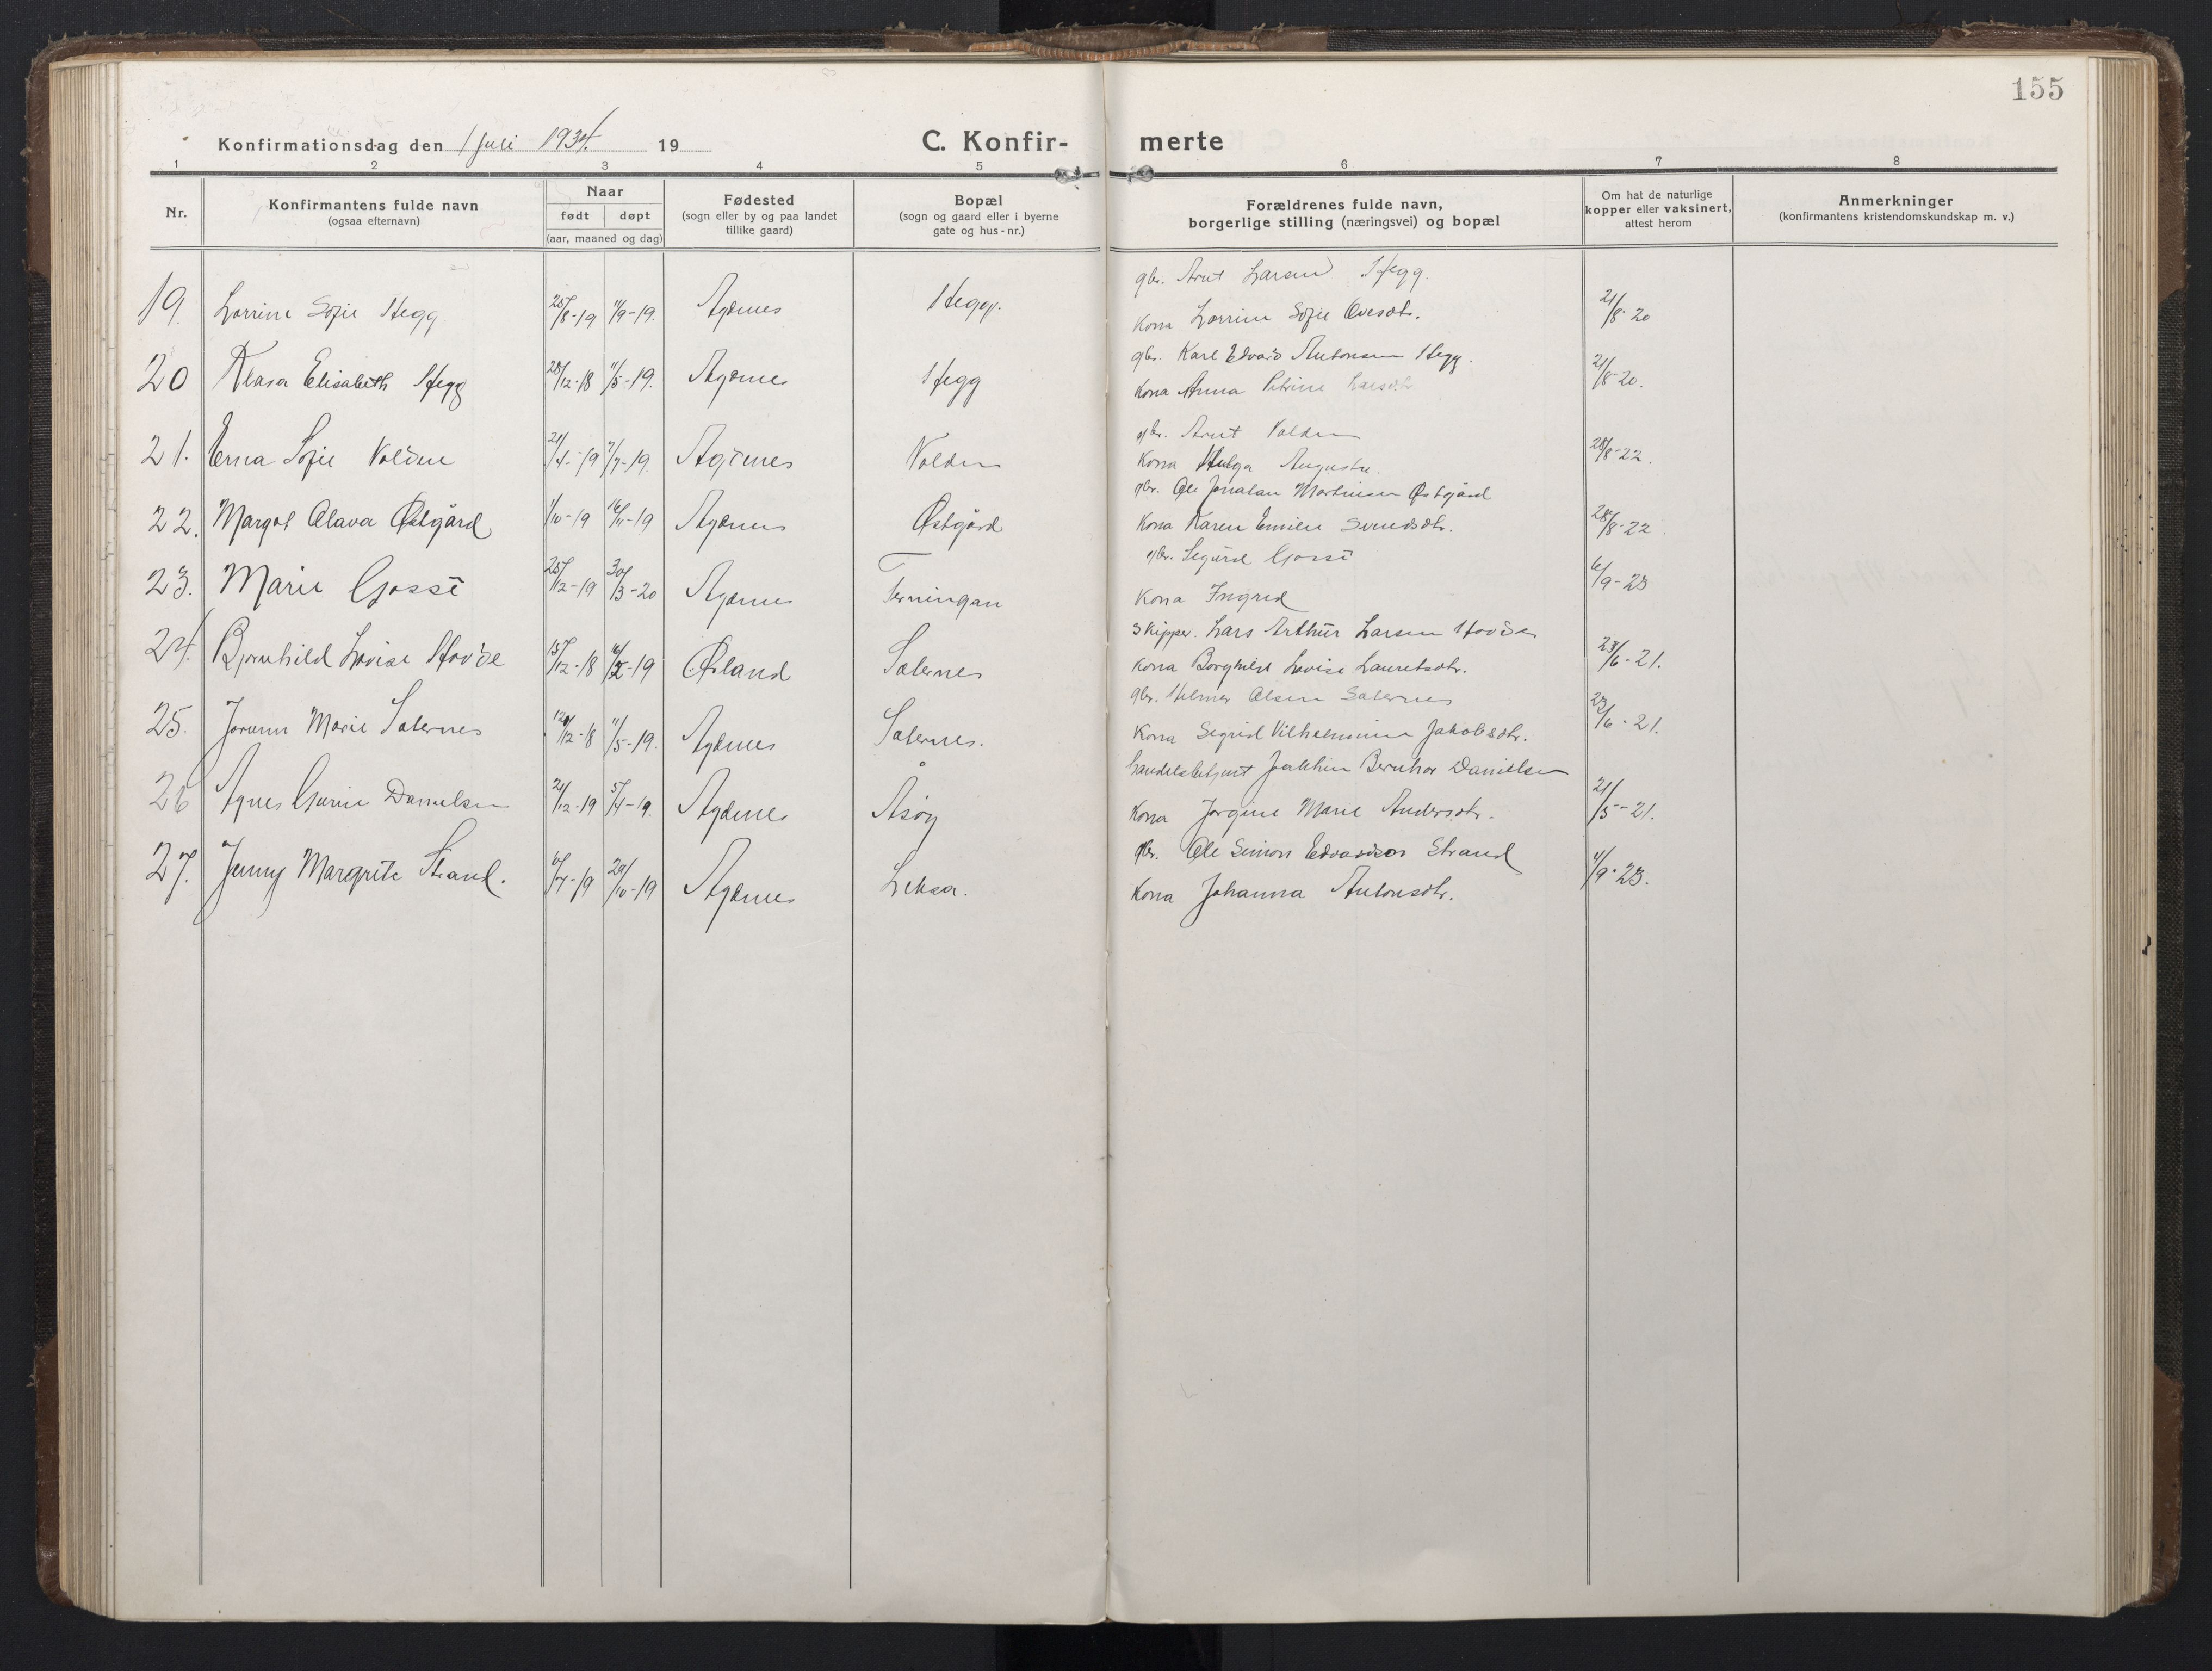 155
Konfirmationsdag den 1 Juli 1934. 19
C. Konfir-
merte
1 2 3 4 5 6 7 8
Nr.
Konfirmantens fulde navn
(ogsaa efternavn)
Naar
født døpt
(aar, maaned og dag)
Fødested
(sogn eller by og paa landet
tillike gaard)
Bopæl
(sogn og gaard eller i byerne
gate og hus-nr.)
Forældrenes fulde navn,
borgerlige stilling (næringsvei) og bopæl
Om hat de naturlige
kopper eller vaksinert,
attest herom
Anmerkninger
(konfirmantens kristendomskundskap m. v.)
gbr. Arnt Larsen Hegg.
19. Lorrine Sofie Hegg 25/8-19 11/9-19. Agdenes Hegg. Kona Lorrine Sofie Ovesdtr. 21/8-20
gbr. Karl Edvard Antonsen Hegg.
20 Klara Elisabeth Hegg 28/12-18 11/5-19. Agdenes Hegg Kona Anna Petrine Larsdtr 21/8-20.
gbr. Arnt Volden
21. Erna Sofie Volden 21/4-19 7/7-19. Agdenes Volden Kona Helga Auguste. 28/8-22.
gbr. Ole Jonatan Martinsen Østgård
22. Margot Olava Østgård 1/10-19 16/11-19 Agdenes Østgård Kona Karen Emilie Svendsdtr. 28/8-22.
gbr. Sigurd Gjossè
23. Marie Gjossè 25/12-19 30/3-20 Agdenes Terningan Kona Ingrid 6/9-23
Skipper. Lars Arthur Larsen Hovde
24. Bjørnhild Lovise Hovde 15/12-18 16/2-19 Ørland Saternes Kona Borghild Lovise Lauretsdtr. 23/6-21.
gbr. Helmer Olsen Saternes
25. Jorunn Marie Saternes 12/12-18 11/5-19. Agdenes Saternes. Kona Sigrid Vilhelmine Jakobsdtr. 23/6-21.
handelsbetjent Joakkim Bernhar Danielsen
26 Agnes Danielsen 21/12-19 5/4-19. Agdenes Åsøy Kona Jørgine Marie Andersdtr. 21/5-21.
gbr. Ole Simon Edvardsen Strand
27. Jenny Margrete Strand. 6/7-19 29/10-19 Agdenes Leksa. Kona Johanna Antonsdtr. 4/9-23.